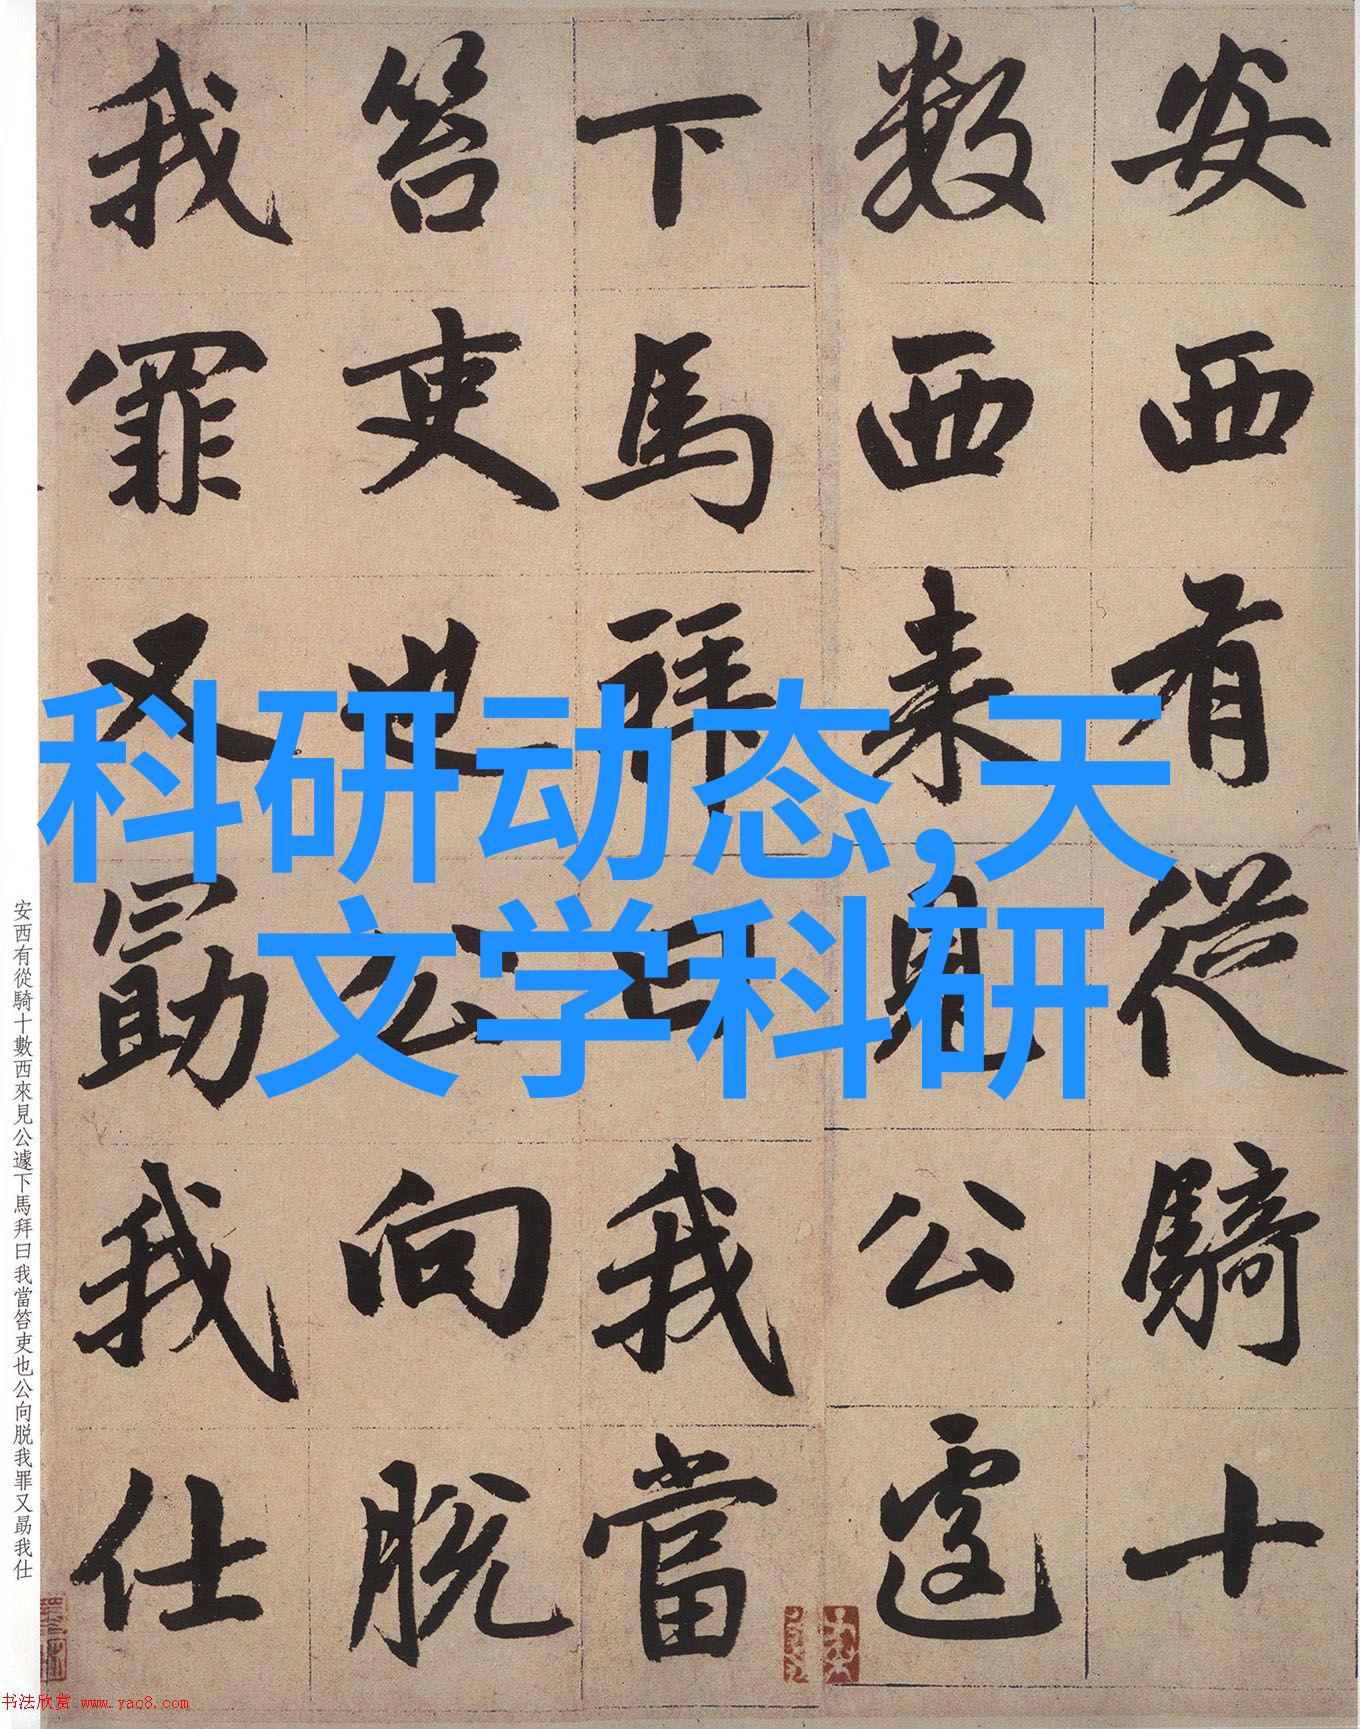 安西有從騎十
數西来見公遽
下馬拜曰我當
笞吏也公向脱
我罪又勗我仕
科研动态,天
文学科研
安西有從騎十數西來見公遽下馬拜曰我當笞吏也公向脱我罪又勗我仕
书法欣赏 www.yac8.com